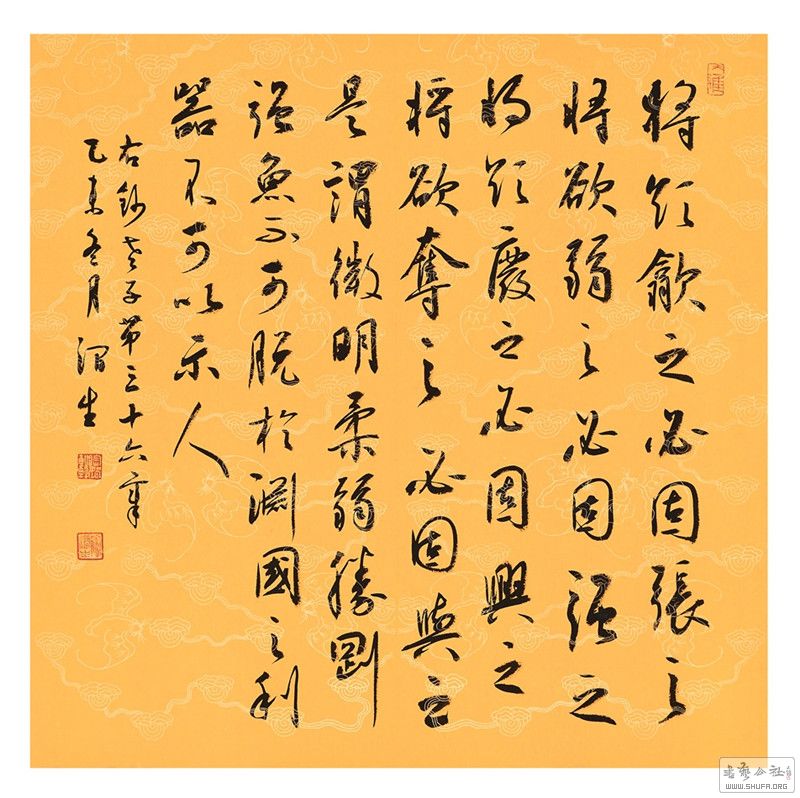 將欲歙之必固張之
將欲弱之必固強之
將欲廢之必固興之
將欲奪之必固與之
是謂微明柔弱勝剛
強魚不可脫於淵國之利
器不可以示人
右鈔老子第三十六章
乙未冬月 渭生
WWW.SHUFA.ORG